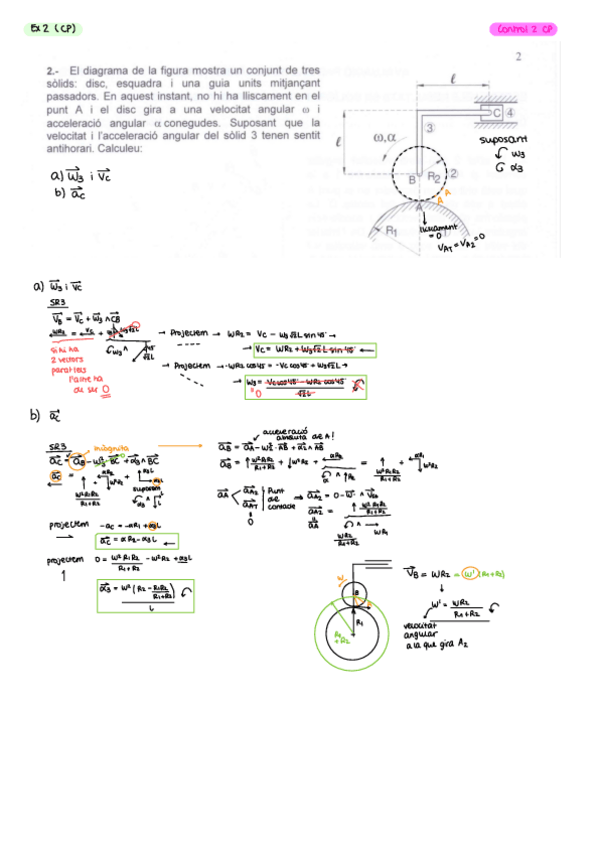 Ex 2 (CP)
Control 2 CP
2
2.- El diagrama de la figura mostra un conjunt de tres
sòlids: disc, esquadra i una guia units mitjançant
passadors. En aquest instant, no hi ha lliscament en el
punt A i el disc gira a una velocitat angular ω i
acceleració angular α conegudes. Suposant que la
velocitat i l'acceleració angular del sòlid 3 tenen sentit
antihorari. Calculeu:
a) ω3 i vc
b) ac
ℓ
C 4
3
ℓ
ω,α
B R2 2
A
R1
suposant
ω3
α3
A
A
lliscament
= 0
VAT = VA2 = 0
a) ω3 i vc
SR3
VB = VC + ω3 ∧ CB
si hi ha
2 vectors
paral·lels
l'altre ha
de ser 0
→ Projectem → ωR2 = Vc - ω3√2L sin 45°
→ Vc = ωR2 + ω3√2L sin 45°
→ Projectem → -ωR2 cos45 = -Vc cos45 + ω3√2L →
→ ω3 = Vc cos45° - ωR2 cos45
√2L
= 0
b) ac
SR3
incògnita
ac = aB - ω3² BC + α3 ∧ BC
suposem
projectem -ac = -αR2 + α3L
ac = αR2 - α3L
projectem 0 = ω²R1R2 / R1+R2 - ω²R2 + α3L
α3 = ω² (R2 - R1R2 / R1+R2)
L
acceleració
absoluta de A!
aB = aA - ω2² · AB + α2 ∧ AB
Punt
de
contacte
VB = ωR2 = ω' (R1+R2)
ω' = ωR2
R1+R2
velocitat
angular
a la que gira A2
B
R1
R1+R2